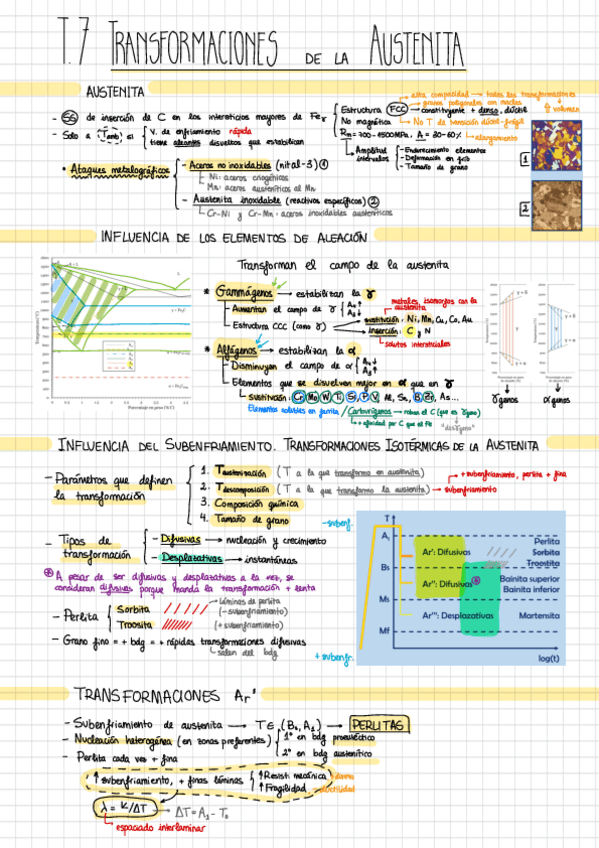 T.7 TRANSFORMACIONES DE LA AUSTENITA
AUSTENITA
- SS de inserción de C en los intersticios mayores de Feγ
- Solo a Tamb si
V. de enfriamiento rápida
tiene aleantes disueltos que estabilizan
Estructura FCC
alta compacidad → todas las transformaciones
↑ volumen
granos poligonales con maclas
constituyente + denso, dúctil
No magnética
No T de transición dúctil-frágil
Rm = 700 - 1500MPa, A = 30-60%
alargamiento
Amplitud intervalos
- Endurecimiento elementos
- Deformación en frío
- Tamaño de grano
• Ataques metalográficos
- Aceros no inoxidables (nital-3) 1
Ni: aceros criogénicos
Mn: aceros austeníticos al Mn
- Austenita inoxidable (reactivos específicos) 2
Cr-Ni y Cr-Mn: aceros inoxidables austeníticos
1
2
INFLUENCIA DE LOS ELEMENTOS DE ALEACIÓN
Transforman el campo de la austenita
* Gammágenos → estabilitan la γ
Aumentan el campo de γ
A4 ↑
A3 ↓
metales isomorfos con la austenita
Estructura CCC (como γ)
sustitución: Ni, Mn, Cu, Co, Au
inserción: C y N
solutos intersticiales
* Alfágenos → estabilitan la α
Disminuyen el campo de
Elementos que se disuelven mejor en α que en γ
Sustitución: Cr, Mo, W, Ti, Si, P, V, Al, Sn, B, Zr, As...
Elementos solubles en ferrita / Carburígenos → roban el C (que es γgeno)
+ afinidad por C que el Fe
"desγgeno"
γgenos
αgenos
INFLUENCIA DEL SUBENFRIAMIENTO. TRANSFORMACIONES ISOTÉRMICAS DE LA AUSTENITA
- Parámetros que definen la transformación
1. Taustenización (T a la que transformo en austenita)
2. Tdescomposición (T a la que transformo la austenita) → subenfriamiento
+ subenfriamiento, perlita + fina
3. Composición química
4. Tamaño de grano
- Tipos de transformación
- Difusivas → nucleación y crecimiento
- Desplazativas → instantáneas
A pesar de ser difusivas y desplazativas a la vez, se
consideran difusivas porque manda la transformación + lenta
- Perlita
Sorbita
Láminas de perlita
(- subenfriamiento)
Troosita
(+ subenfriamiento)
- Grano fino = + bdg = + rápidas transformaciones difusivas
salen del bdg
- subenf.
+ subenfr.
T
A1
Bs
Ms
Mf
Ar': Difusivas
Ar'': Difusivas
Ar''': Desplazativas
Perlita
Sorbita
Troostita
Bainita superior
Bainita inferior
Martensita
log(t)
TRANSFORMACIONES Ar'
- Subenfriamiento de austenita → T ∈ (Bs, A1) → PERLITAS
- Nucleación heterogénea (en zonas preferentes)
1º en bdg proeutéctico
2º en bdg austenítico
- Perlita cada vez + fina
↑ subenfriamiento, + finas láminas
↑ Resist. mecánica
↑ Fragilidad
λ = K/ΔT → ΔT = A1 - T0
espaciado interlaminar